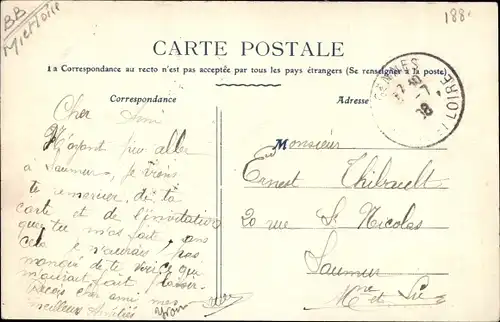 BB
M et Loire
188
CARTE POSTALE
La Correspondance au recto n'est pas acceptée par tous les pays étrangers (Se renseigner à la poste)
Correspondance
Adresse
GENNES
7
LOIRE
Cher Ami
N'ayant pu aller
à Saumur, je viens
te remercier de ta
carte et de l'invitation
que tu m'as fait
cela je n'aurais pas
manqué de te
m'aurait fait plaisir
cher ami mes
meilleurs Amitiés
Monsieur
Ernest Thibault
20 rue St Nicolas
Saumur
Mne et Lre